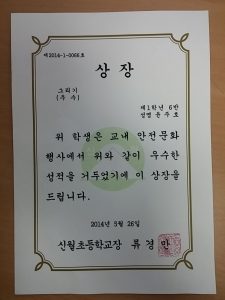 제2014-1-0086호
상장
그리기
(우수)
제1학년 6반
성명 윤주호
위 학생은 교내 안전문화
행사에서 위와 같이 우수한
성적을 거두었기에 이 상장을
드립니다.
2014년 5월 26일
신월초등학교장 류경만